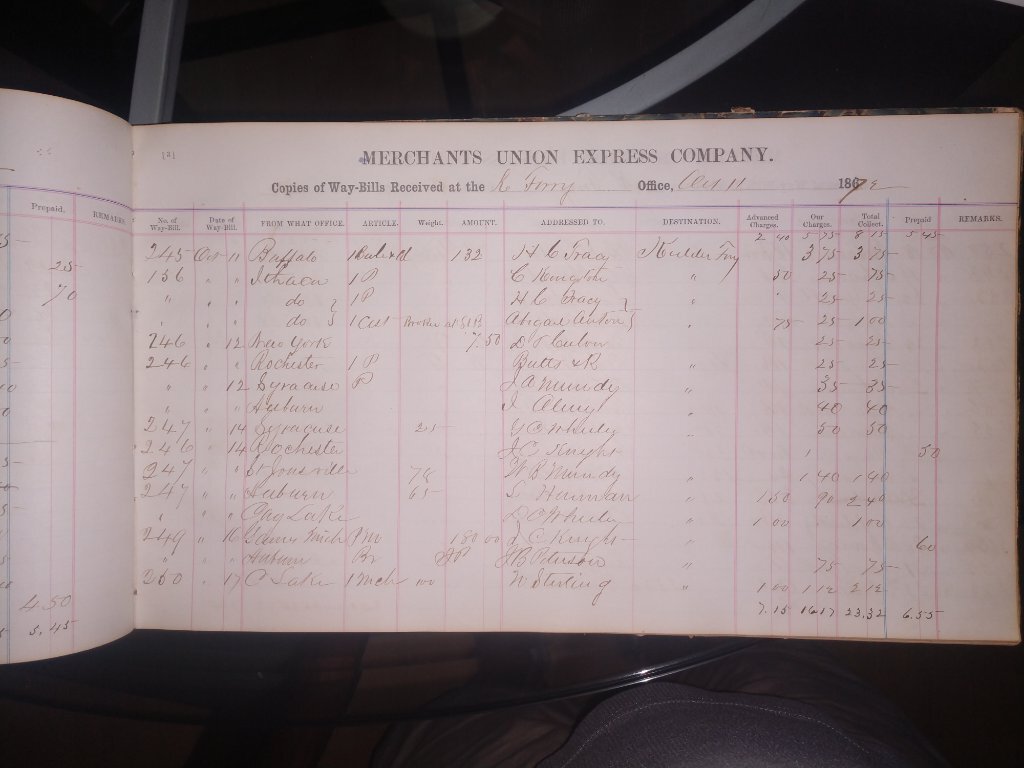 121
MERCHANTS UNION EXPRESS COMPANY.
Copies of Way-Bills Received at the K Ferry Office, Oct 11 1872
Prepaid. REMARKS.
No. of Way-Bill. Date of Way-Bill. FROM WHAT OFFICE. ARTICLE. Weight. AMOUNT. ADDRESSED TO. DESTINATION. Advanced Charges. Our Charges. Total Collect. Prepaid REMARKS.
2 40 5 75 8 15 5 45
245 Oct 11 Buffalo 132 H C Tracy Kidder Fry 3 75 3 75
156 " " Ithaca 1 P C 50 25 75
" " " do 1 P H C Tracy " 25 25
" " " do 1 Cut Abigail " 75 25 1 00
246 " 12 New York 7.50 D 25 25
246 " " Rochester 1 P Butts & R " 25 25
" " 12 Syracuse P J A Mundy " 35 35
" " " Auburn J " 40 40
247 " 14 Syracuse 25 G C Wheeler " 50 50
246 " 14 Rochester J C Knight " 50
247 " " St Jonsville 78 W B Mundy " 1 40 1 40
247 " " Auburn 65 S Herman " 1 50 90 2 40
" " " Cay Lake D C Wheeler " 1 00 1 00
249 " 16 1 180 00 J C Knight " 60
" " " Auburn Bx J B Peterson " 75 75
250 " 17 C Lake 1 100 W Sterling " 1 00 1 12 2 12
7.15 16 17 23.32 6.55
25
70
4.50
5.45